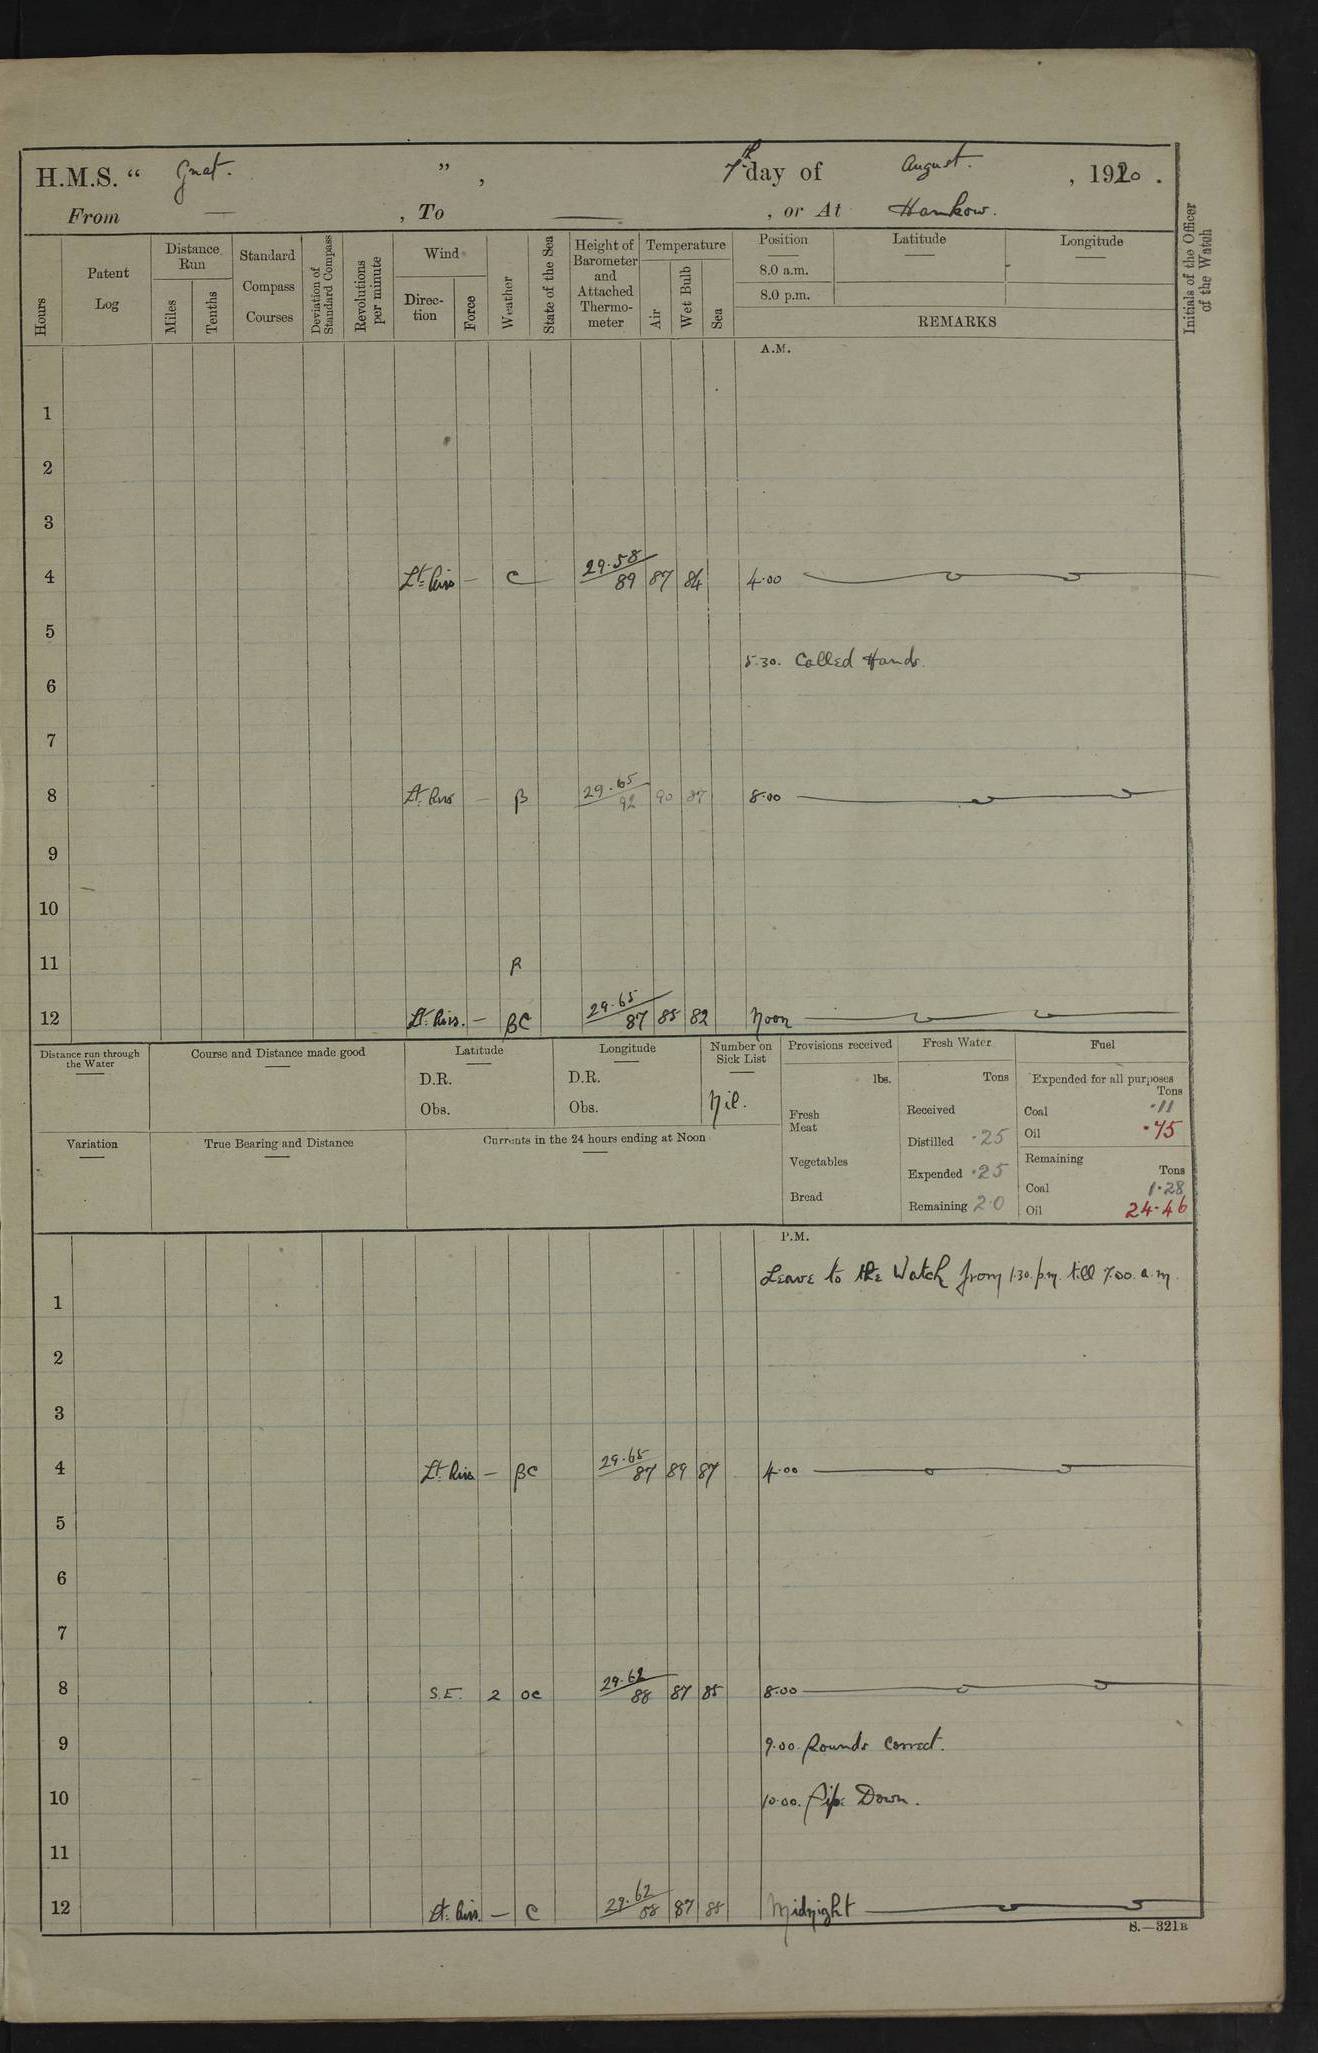 H.M.S. “ Gnat. ” , 7th day of August. , 1920 .
From — , To — , or At Hankow.
Hours
Patent Log
Distance Run
Miles
Tenths
Standard Compass Courses
Deviation of Standard Compass
Revolutions per minute
Wind
Direc-tion
Force
Weather
State of the Sea
Height of Barometer and Attached Thermo-meter
Temperature
Air
Wet Bulb
Sea
Position
8.0 a.m.
8.0 p.m.
Latitude
Longitude
REMARKS
Initials of the Officer of the Watch
A.M.
1
2
3
4 Lt. Airs — C 29.58 89 87 84 4.00
5
5.30. Called Hands.
6
7
8 Lt. Airs — B 29.65 92 90 87 8.00
9
10
11 B
12 Lt. Airs. — BC 29.65 87 85 82 Noon
Distance run through the Water
Course and Distance made good
Latitude
D.R.
Obs.
Longitude
D.R.
Obs.
Number on Sick List
Nil.
Provisions received
lbs.
Fresh Meat
Vegetables
Bread
Fresh Water
Tons
Received
Distilled .25
Expended .25
Remaining 2.0
Fuel
Expended for all purposes
Tons
Coal .11
Oil .75
Remaining
Tons
Coal 1.28
Oil 24.46
Variation
True Bearing and Distance
Currents in the 24 hours ending at Noon
P.M.
Leave to the Watch from 1.30. p.m. till 7.00. a.m.
1
2
3
4 Lt. Airs — BC 29.65 87 89 87 4.00
5
6
7
8 S.E. 2 OC 29.62 88 87 85 8.00
9 9.00. Rounds Correct.
10 10.00. Pipe Down.
11
12 Lt. Airs. — C 29.62 88 87 85 Midnight
S.—321B